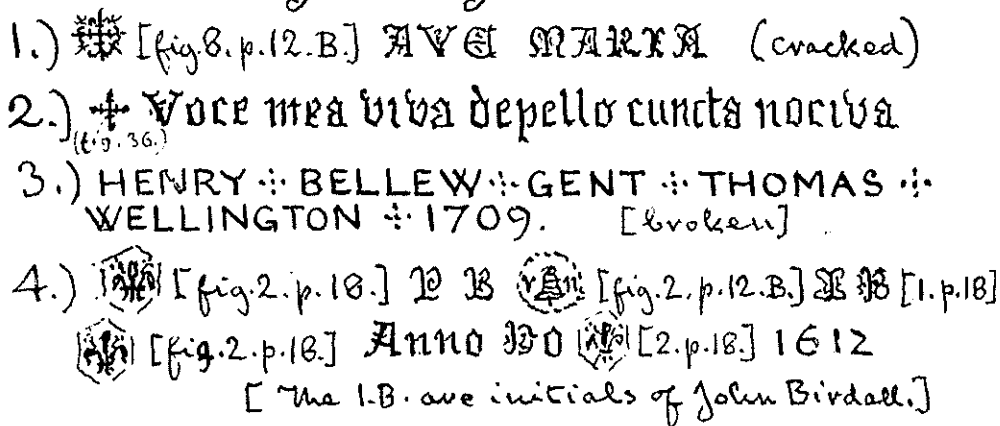 1.) [fig. 8. p. 12. B.] AVE MARIA (cracked)
2.) + Voce mea viva depello cuncta nociva
(fig. 36.)
3.) HENRY ⁜ BELLEW ⁜ GENT ⁜ THOMAS ⁜
WELLINGTON ⁜ 1709. [broken]
4.) [fig. 2. p. 18.] P B [fig. 2. p. 12. B.] I B [1. p. 18]
[fig. 2. p. 18.] Anno DO [2. p. 18.] 1612
[The I.B. are initials of John Birdall.]